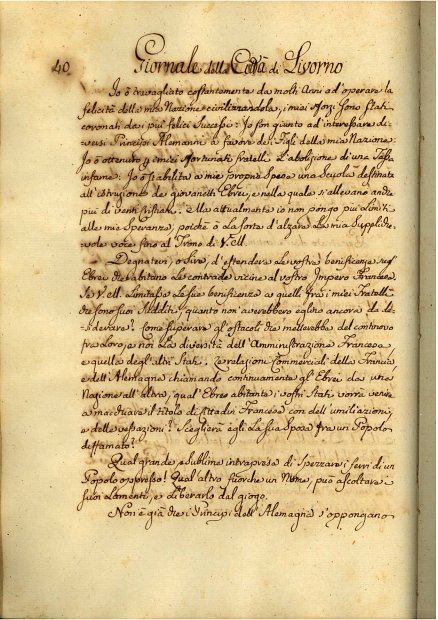 40
Giornale della Città di Livorno
Io ò travagliato costantemente da molti Anni ad operare la
felicità della mia Nazione civilizzandola, i miei sforzi sono stati
coronati da i più felici Successi: Io son giunto ad interessare di-
versi Principi Alemanni a favore de' Figli della mia Nazione:
Io ò ottenuto a' miei sfortunati fratelli L'abolizione di una Tassa
infame: Io ò stabilita a mie proprie Spese una Scuola destinata
all'istruzione de' giovanetti Ebrei, e nella quale si allevano anche
più di venti Cristiani. Ma attualmente io non pongo più Limiti
alle mie Speranze, poichè ò la sorte d'alzare La mia Suppliche-
vole voce fino al Trono di V. M.
Degnatevi, o Sire, d'estendere La vostra beneficenza sugl'
Ebrei che abitano Le contrade vicine al vostro Impero Francese.
Se V. M. Limitasse Le sue beneficenze a quelli fra i miei Fratelli
che sono suoi Sudditi, quanto non averebbero eglino ancora da de-
siderare? Come superare gl'ostacoli che metterebbe del continovo
fra Loro, e noi La diversità dell'Amministrazione Francese
e quella degl'altri Stati. Le relazioni Commerciali della Francia
e dell'Alemagna chiamando continuamente gl'Ebrei da una
Nazione all'altra, qual'Ebreo abitante i vostri Stati vorrà venire
a mischiare il titolo di Cittadin Francese con dell'umiliazioni,
e delle vessazioni? Sceglierà egli La sua Sposa fra un Popolo
diffamato?
Qual grande, e sublime intrapresa di Spezzare i ferri di un
Popolo oppresso! Qual'altro fuorche un Nume, può ascoltare i
suoi Lamenti, e Liberarlo dal giogo.
Non è già che i Principi dell'Alemagna s'oppongano